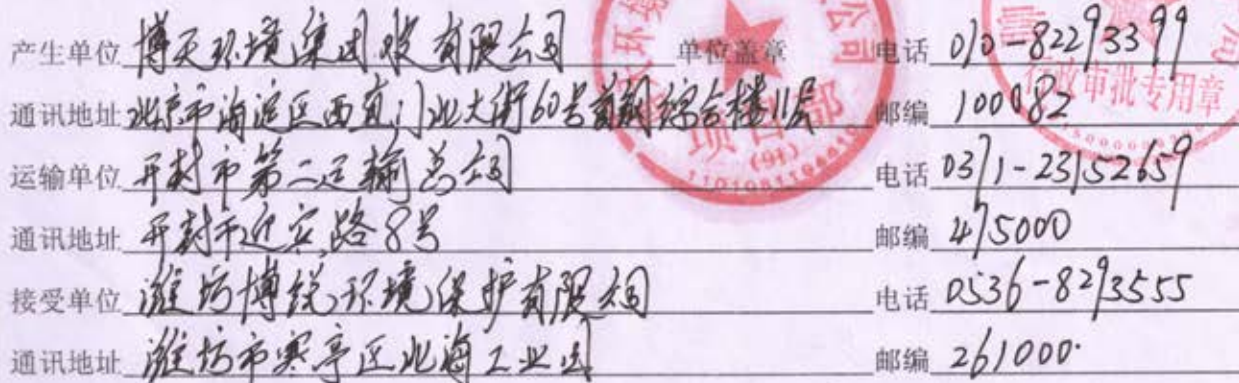 产生单位 博天环境集团股有限公司 单位盖章 电话 010-82293399
通讯地址 北京市海淀区西直门北大街60号首钢综合楼11层 邮编 100082
行政审批专用章
项目部
(91)
运输单位 开封市第二运输总公司 电话 0371-23152659
通讯地址 开封市迎宾路8号 邮编 475000
接受单位 潍坊博锐环境保护有限公司 电话 0536-8293555
通讯地址 潍坊市寒亭区北海工业园 邮编 261000